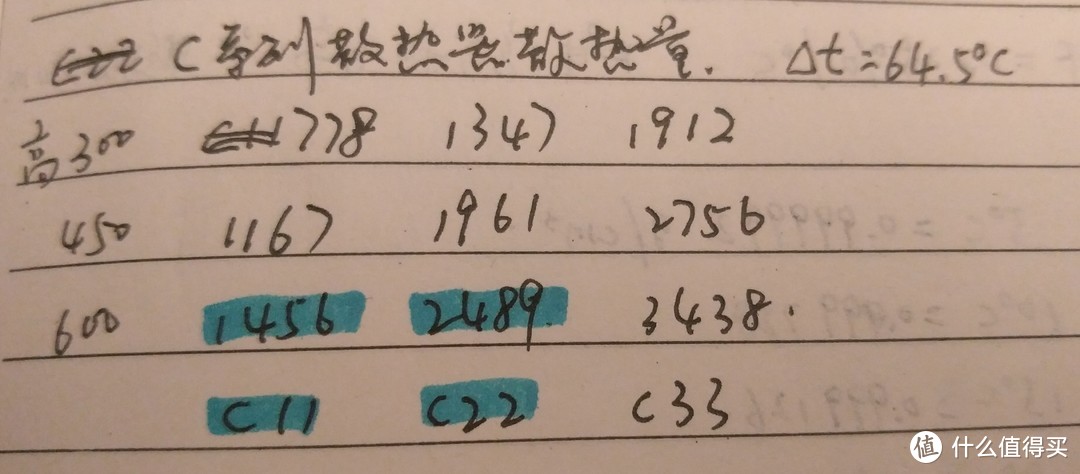 C系列散热器散热量. Δt=64.5°C
高300 778 1347 1912
450 1167 1961 2756
600 1456 2489. 3438.
C11 C22 C33
值 什么值得买